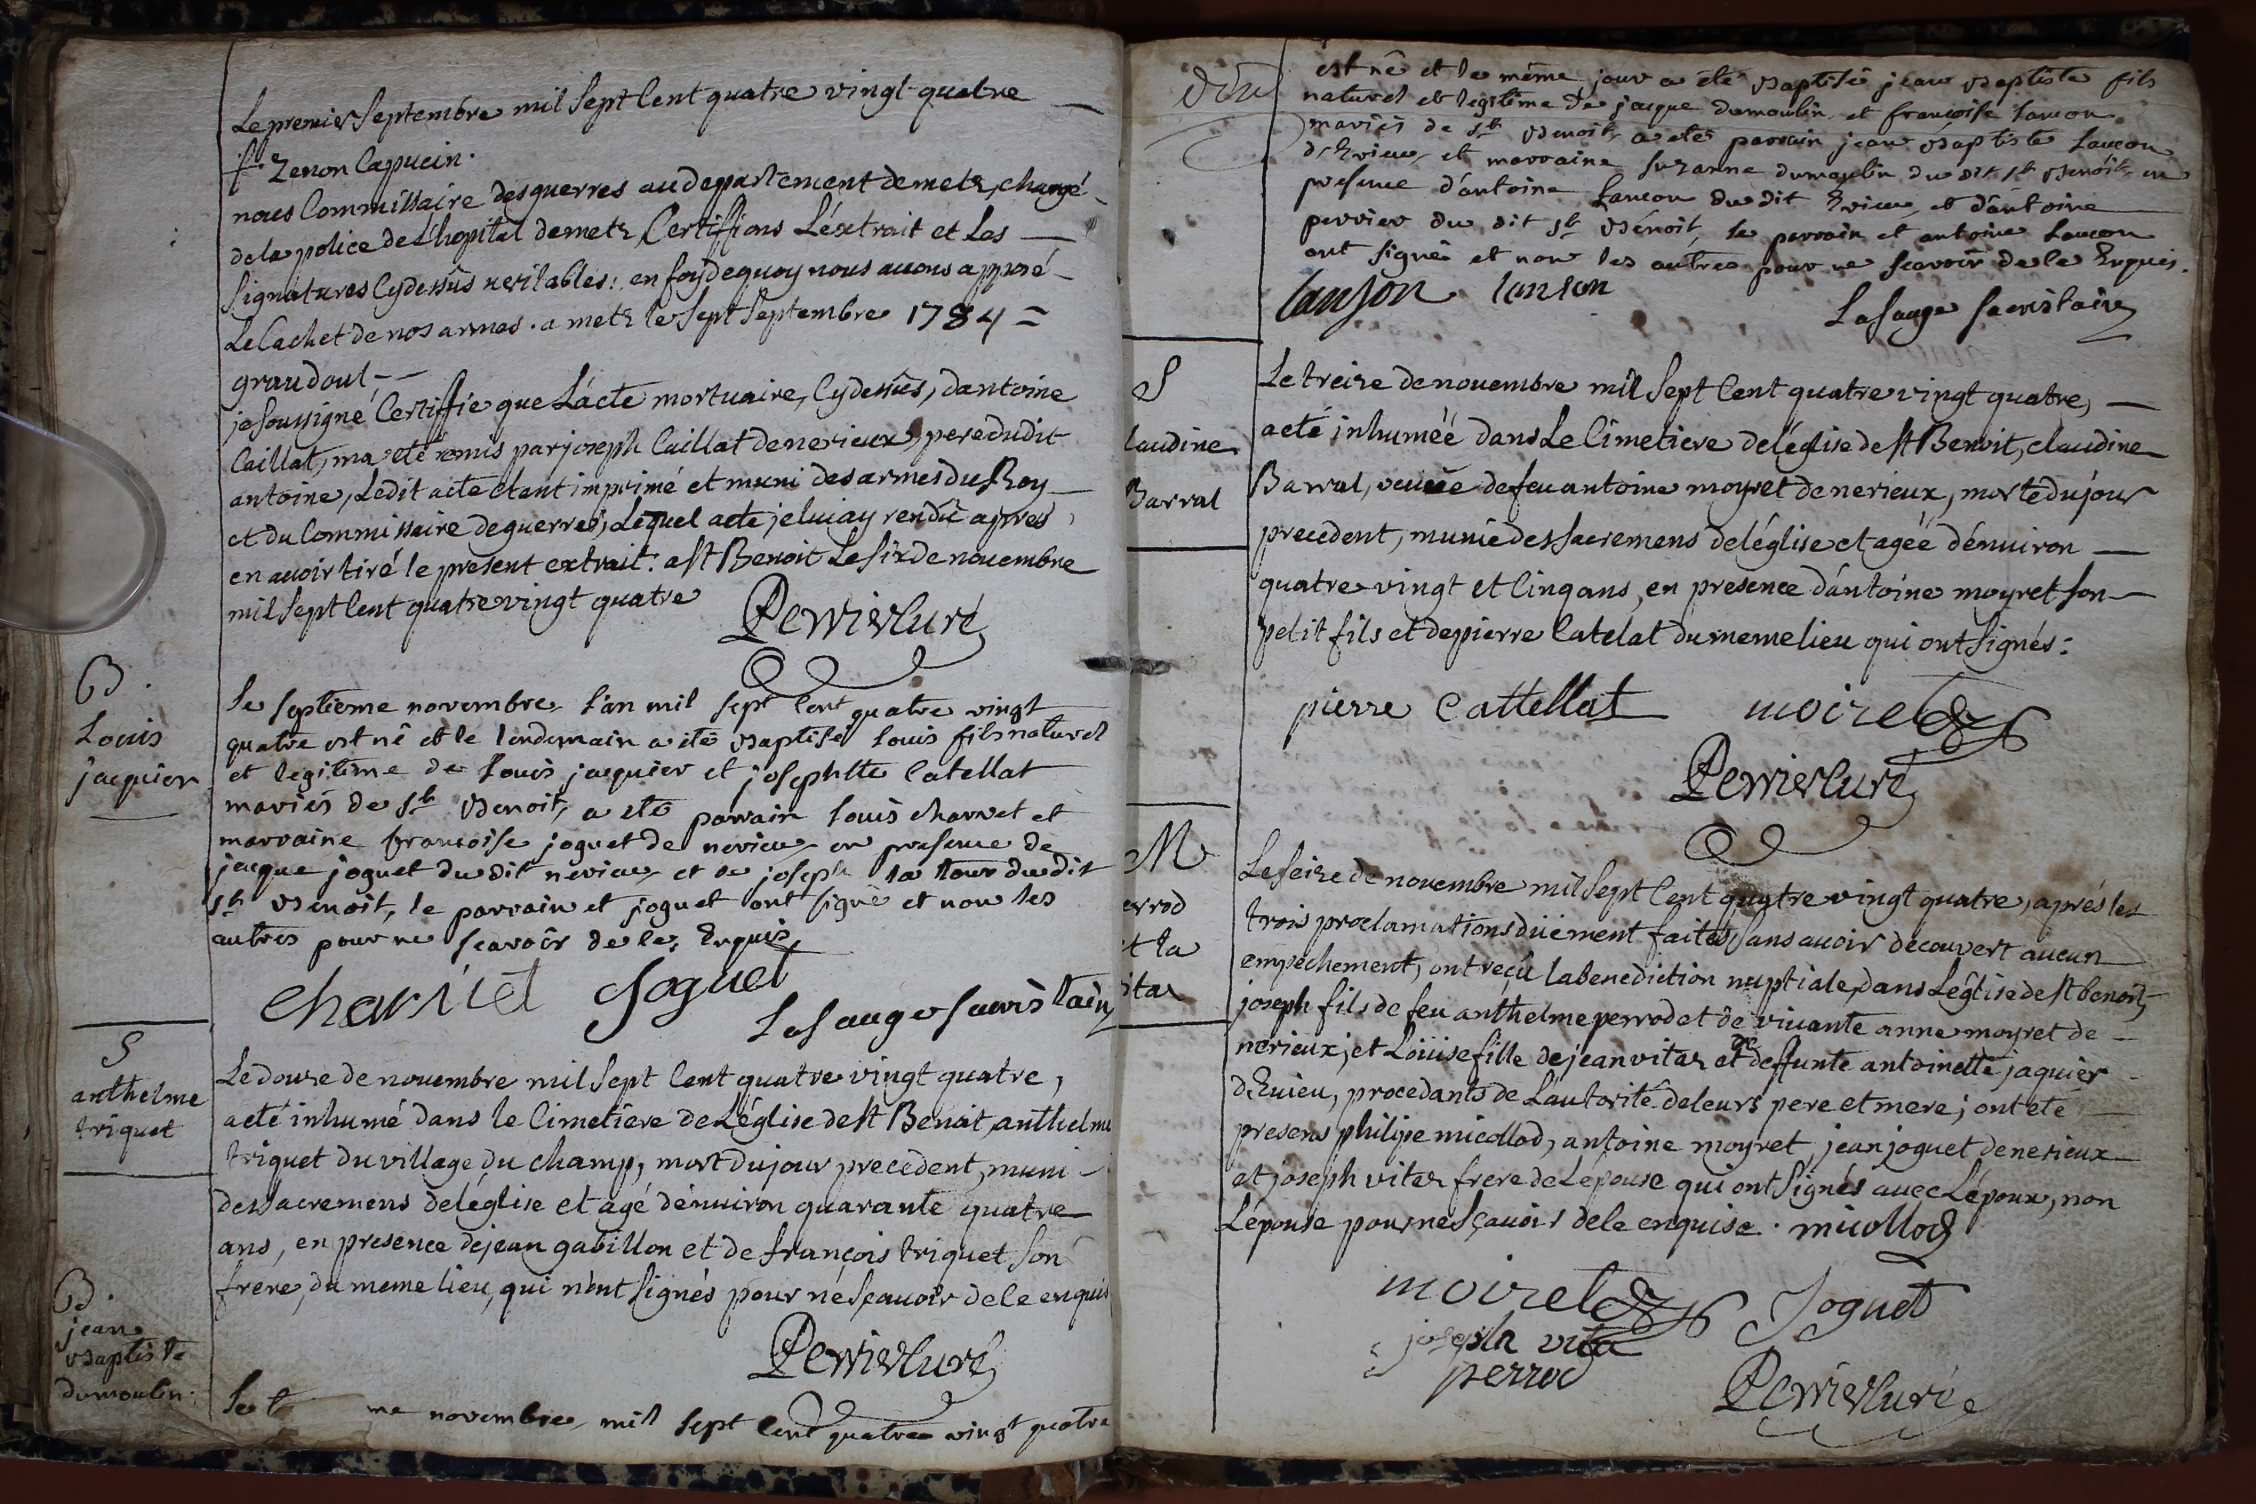 Le premier Septembre mil Sept Cent quatre vingt quatre
f. Zenon Capucin.
nous Commissaire des guerres au departement de metz, chargé
de la police de L'hopital de metz, Certiffions L'extrait et Les
Signatures Cydessus veritables: en foy de quoy nous auons apposé
Le Cachet de nos armes. a metz le Sept Septembre 1784 =
graudoul
je Soussigné Certiffie que L'acte mortuaire, Cydessus, d'antoine
Caillat, m'a eté remis par joseph Caillat de nerieux, pere dudit
antoine, Ledit acte etant imprimé et muni des armes du Roy
et du Commissaire de guerres, Lequel acte je luiay rendu apres
en auoir tiré le present extrait: a St Benoit Le Six de nouembre
mil Sept Cent quatre vingt quatre
Perrier Curé
B.
Louis
jacquier
Le Septieme novembre L'an mil Sept Cent quatre vingt
quatre est né et le lendemain a été Baptisé Louis fils naturel
et legitime de Louis jacquier et josephte Catellat
mariés de St Benoit, a eté parrain Louis charvet et
marraine francoise joguet de nerieu, en presence de
jacque joguet du dit nerieu et de joseph la tour du dit
St Benoit, le parrain et joguet ont signé et non les
autres pour ne scavoir de le, Enquis.
charvet Joguet
Lasauge sacristain
S
anthelme
triquet
Le douze de nouembre mil Sept Cent quatre vingt quatre,
a eté inhumé dans le Cimetiere de L'église de St Benoit, anthelme
triquet du village du champ, mort du jour precedent, muni
des sacremens de l'église et agé d'enuiron quarante quatre
ans, en presence de jean gabillon et de françois triquet Son
frere, du meme lieu, qui n'ont Signés pour ne Sçauoir de le enquis
Perrier Curé
B.
jean
Baptiste
dumoulin.
Le t me novembre mil Sept Cent quatre vingt quatre
est né et le même jour a été Baptisé jean Baptiste fils
naturel et legitime de jacque dumoulin et francoise Lancon
mariés de St Benoit, a eté parrain jean Baptiste Lancon
d'Evieu, et marraine Suzanne dumoulin du dit St Benoit en
presence d'antoine Lancon du dit Evieu, et d'antoine
perrier du dit St Bénoit, le parrain et antoine Lancon
ont signé et non les autres pour ne scavoir de le Enquis.
Lanson lanson
Lasauge sacristain
S
laudine
Barral
Le treize de nouembre mil Sept Cent quatre vingt quatre,
a eté inhumée dans Le Cimetiere de l'église de St Benoit, claudine
Barral, veuve de feu antoine moyret de nerieux, morte du jour
precedent, munie des Sacremens de l'église et agée d'enuiron
quatre vingt et Cinq ans, en presence d'antoine moyret Son
petit fils et de pierre Catelat du meme lieu qui ont Signés:
pierre Cattellat moiret
Perrier Curé
M
errod
et la
itaz
Le Seize de nouembre mil Sept Cent quatre vingt quatre, aprés les
trois proclamations düement faites, Sans auoir decouvert aucun
empechement, ont reçu la benediction nuptiale, dans L'église de St benoit,
joseph fils de feu anthelme perrod et de vivante anne moyret de
nerieux, et Loüise fille de jean vitaz et de deffunte antoinette jaquier
d'Evieu, procedants de L'autorité de leurs pere et mere; ont eté
presens philipe micollod, antoine moyret, jean joguet de nerieux
et joseph vitaz frere de L'epouse qui ont Signés avec L'époux, non
L'épouse pour ne Sçavoir de le enquise. micollod
moiret Joguet
joseph vita
perrod
Perrier Curé